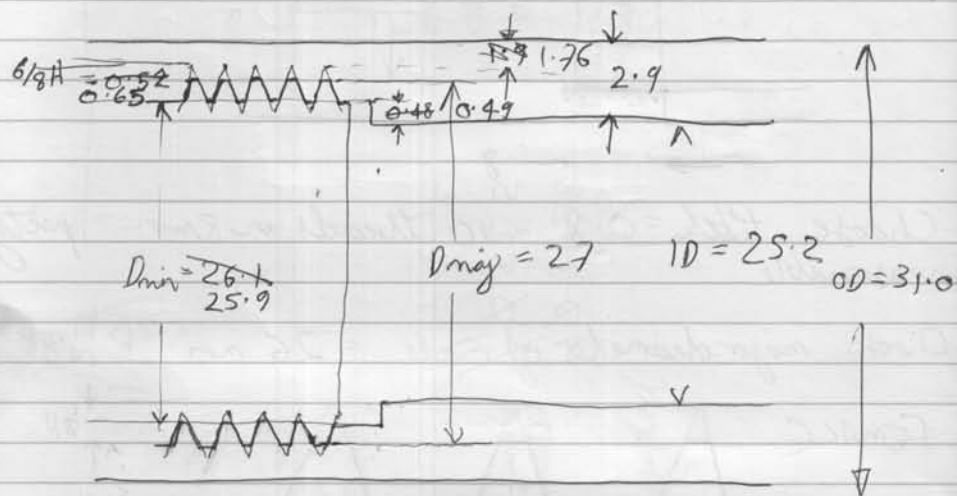 1.76
6/8H = 0.52
0.65
2.9
0.48 0.49
Dmin = 26.1
25.9
Dmaj = 27
ID = 25.2
OD = 31.0